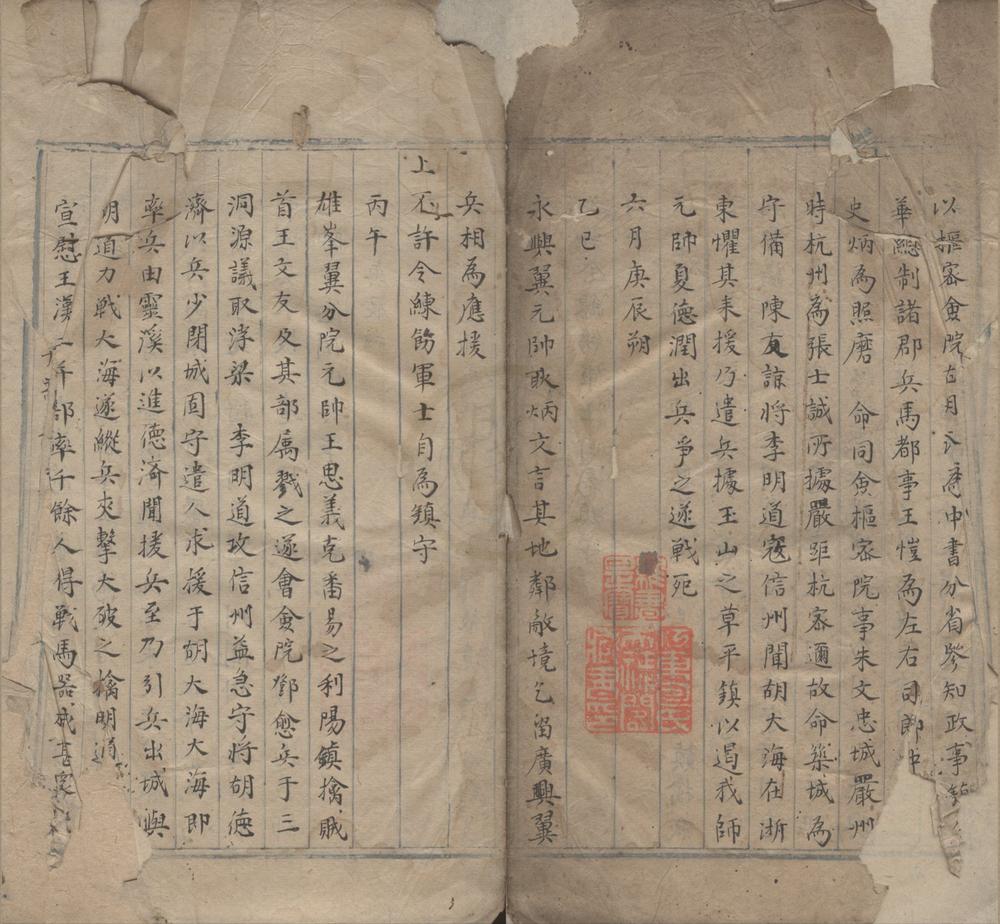 以樞密僉院胡大海為中書分省叅知政事鎮
華總制諸郡兵馬都事王愷為左右司郎中
史炳為照磨　命同僉樞密院事朱文忠城嚴州
時杭州為張士誠所據嚴距杭密邇故命築城為
守備　陳友諒將李明道寇信州聞胡大海在浙
東懼其来援乃遣兵據玉山之草平鎮以遏我師
元帥夏德潤出兵爭之遂戰死
六月庚辰朔
乙巳
永興翼元帥耿炳文言其地鄰敵境乞畄廣興翼
兵相為應援
上不許令練飭軍士自為鎮守
丙午
雄峯翼分院元帥王思義克番昜之利陽鎮擒賊
首王文友及其部属戮之遂會僉院鄧愈兵于三
洞源議取浮梁　李明道攻信州益急守將胡德
濟以兵少閉城固守遣人求援于胡大海大海即
率兵由靈溪以進德濟聞援兵至乃引兵出城與
明道力戰大海遂縱兵夾擊大破之擒明道
宣慰王漢二千部率千餘人得戰馬器械甚衆